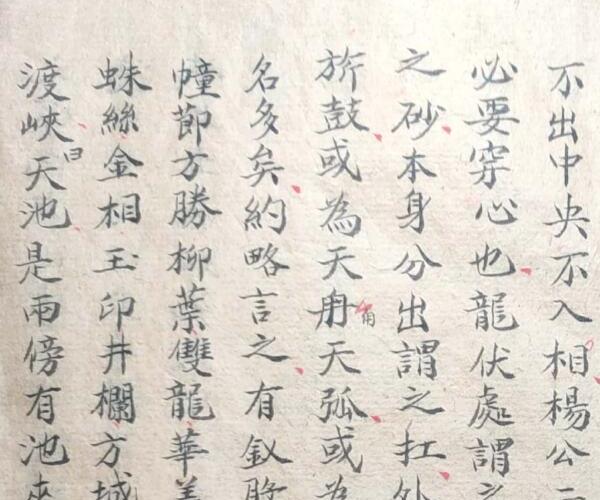 不出中央不入相楊公
必要穿心也龍伏處謂之
之砂本身分出謂之扛外
旂鼓或為天冊角天弧或為
名多矣約略言之有釵股
幢節方勝柳葉雙龍華蓋
蛛絲金相玉印井欄方城
渡峽曰天池是兩傍有池夾